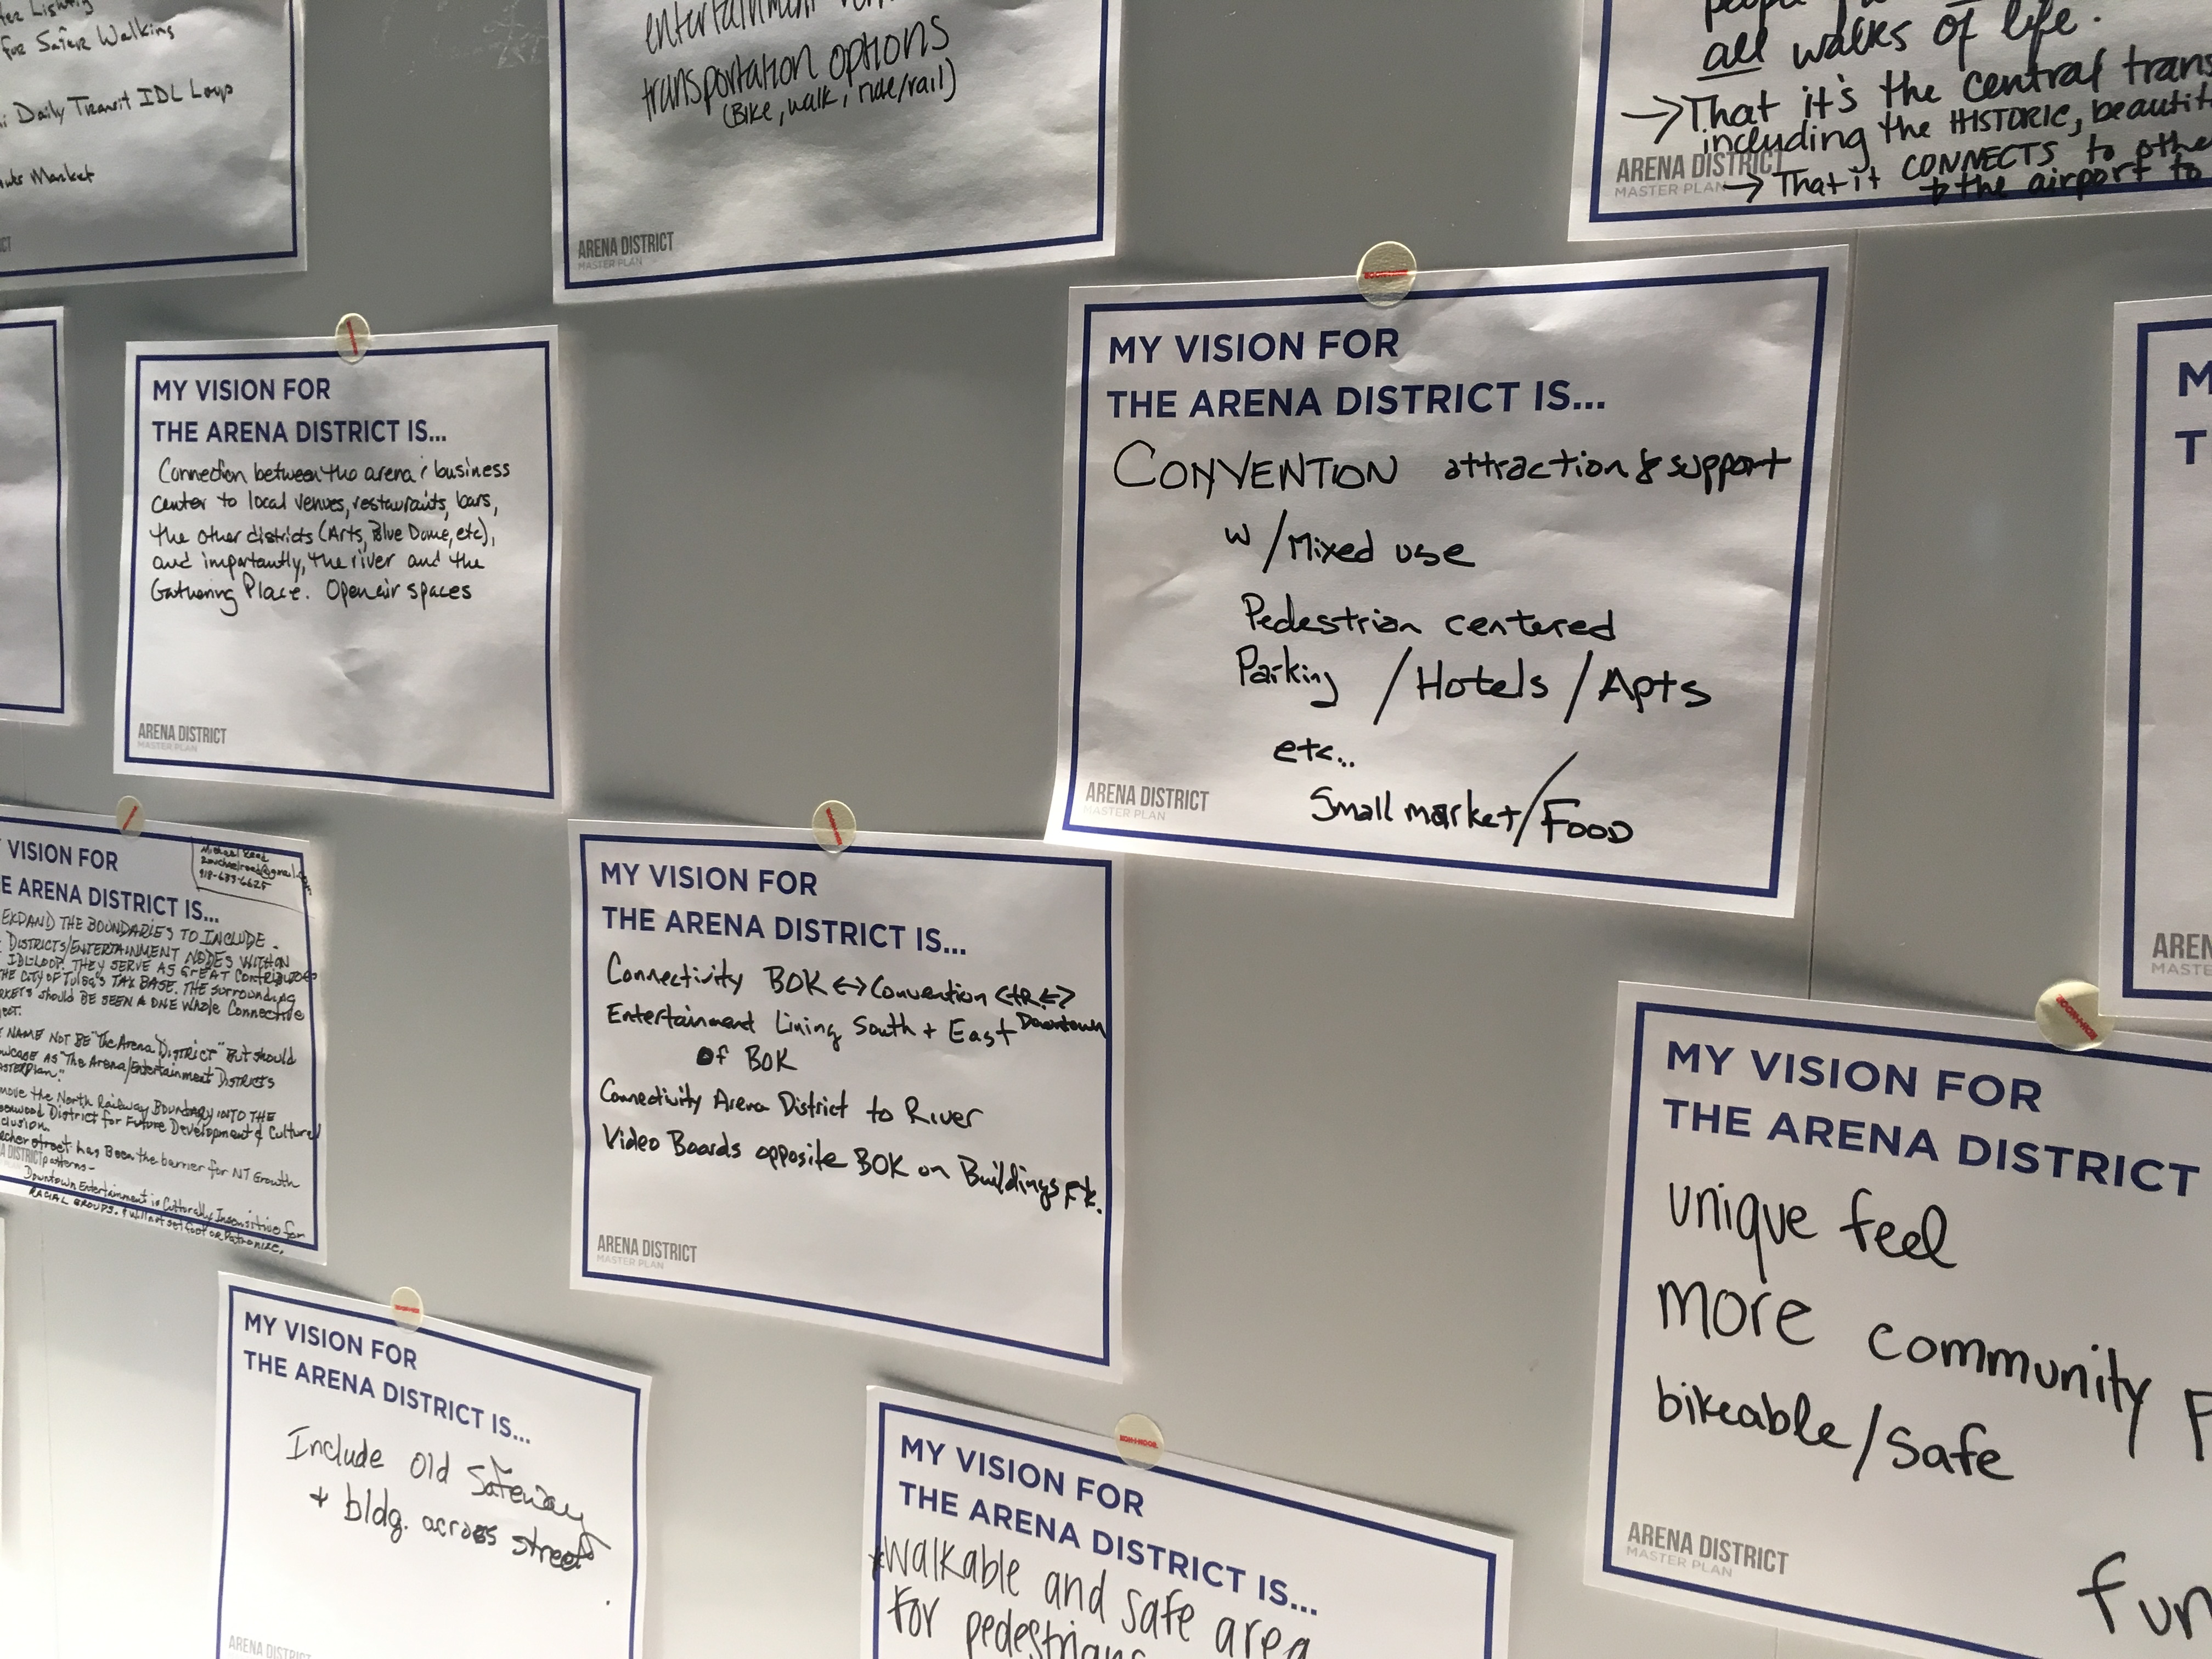 for Safer Walking
Daily Transit IDL Loop
Market
entertainment
transportation options
(Bike, walk, ride/rail)
ARENA DISTRICT
MASTER PLAN
people
all walks of life.
→ That it's the central
including the HISTORIC,
ARENA DISTRICT
MASTER PLAN
→ That it CONNECTS to
the airport to
MY VISION FOR
THE ARENA DISTRICT IS...
Connection between the arena & business
center to local venues, restaurants, bars,
the other districts (Arts, Blue Dome, etc),
and importantly, the river and the
Gathering Place. Open air spaces
ARENA DISTRICT
MASTER PLAN
MY VISION FOR
THE ARENA DISTRICT IS...
CONVENTION attraction & support
w/Mixed use
Pedestrian centered
Parking / Hotels / Apts
etc..
Small market/FOOD
ARENA DISTRICT
MASTER PLAN
VISION FOR
ARENA DISTRICT IS...
Michael Reed
EXPAND THE BOUNDARIES TO INCLUDE
DISTRICTS/ENTERTAINMENT NODES WITHIN
IDL LOOP. THEY SERVE AS GREAT
THE CITY OF TULSA'S TAX BASE. THE SURROUNDING
should BE SEEN A ONE Whole Connective
NAME NOT BE "The Arena District" But should
AS "The Arena/Entertainment DISTRICTS
the North Railway Boundary INTO THE
District for Future Development & Cultural
street has Been the barrier for NT Growth
patterns-
Downtown Entertainment is Culturally Insensitive for
RACIAL GROUPS. & will not set foot or Patronize.
MY VISION FOR
THE ARENA DISTRICT IS...
Connectivity BOK <-> Convention CtR <->
Downtown
Entertainment Lining South + East
of BOK
Connectivity Arena District to River
Video Boards opposite BOK on Buildings
ARENA DISTRICT
MASTER PLAN
MY VISION FOR
THE ARENA DISTRICT
unique feel
more community
bikeable/safe
fun
ARENA DISTRICT
MASTER PLAN
MY VISION FOR
THE ARENA DISTRICT IS...
Include Old Safeway
+ bldg. across street
ARENA DISTRICT
MY VISION FOR
THE ARENA DISTRICT IS...
walkable and safe area
for pedestrians